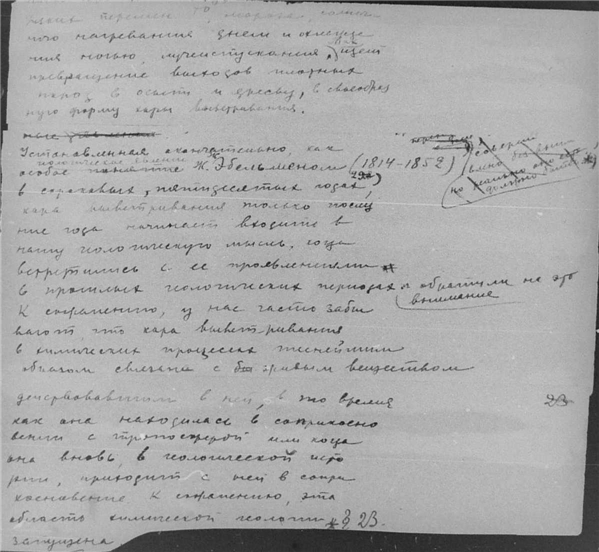 ных перемен t°, мороза, полно
чного нагревания днем и охлажде
ния ночью, лучеиспускания, идет
превращение выходов плотных
пород в осыпи и дресву, в своеобраз
ную форму коры выветривания.
Установленная окончательно, как
особое геологическое явление Ж. Эбельменом (1814-1852)
в сороковых, пятидесятых годах,
кора выветривания только послед
ние года начинает входить в
нашу геологическую мысль, когда
встретились с ее проявлениями
в прошлых геологических периодах и обратили на это
внимание
К сожалению, у нас часто забы
вают, что кора выветривания
в химических процессах теснейшим
образом связана с живым веществом
действовавшим в ней, в то время
23
как она находилась в соприкосно
вении с тропосферой или когда
она вновь, в геологической исто
рии, приходит с ней в сопри
косновение. К сожалению, эта
область химической геологии § 23.
запущена